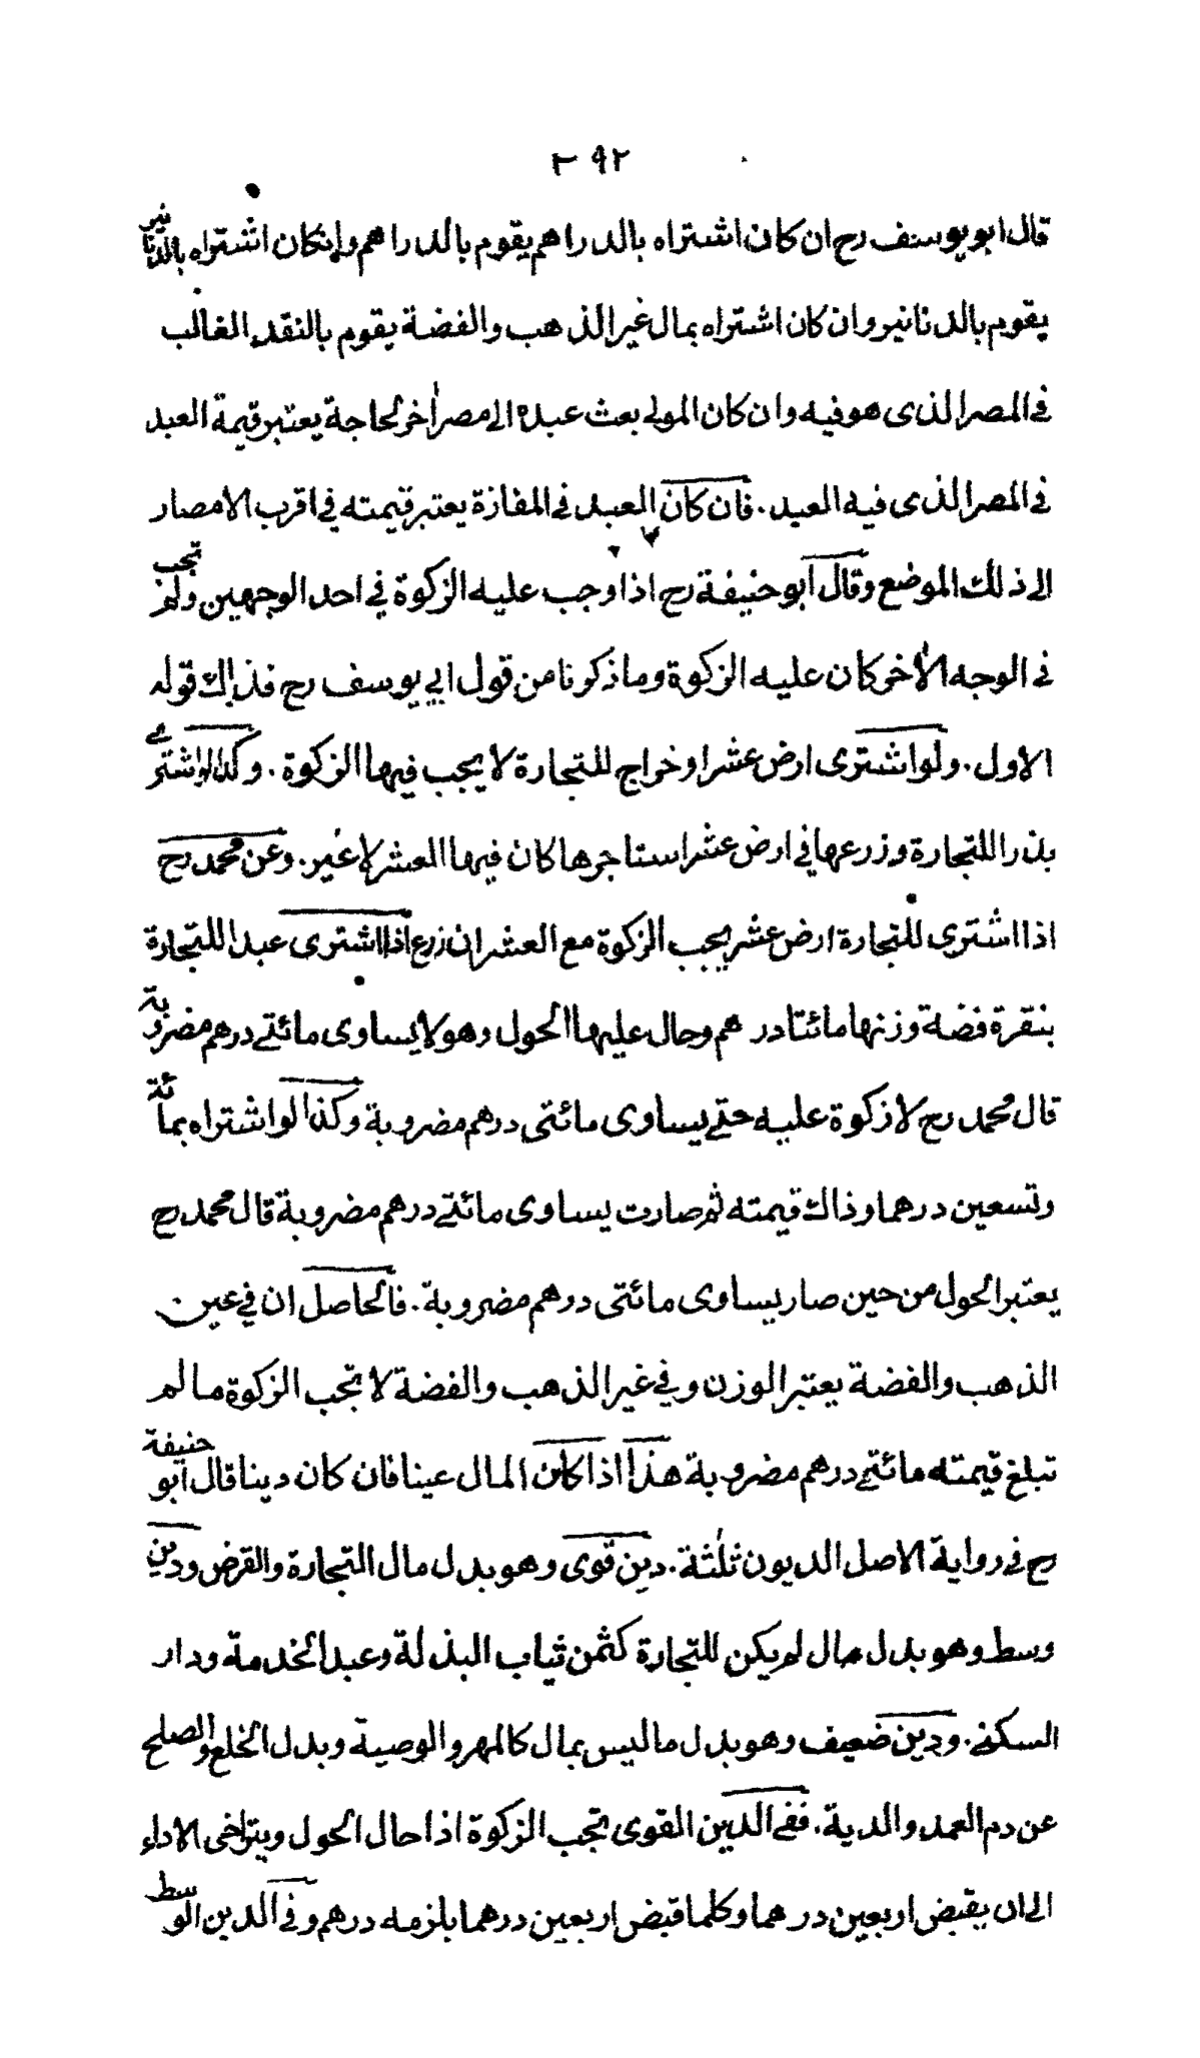 ٣٩٢
قال ابو يوسف رح ان كان اشتراه بالدراهم يقوم بالدراهم وانكان اشتراه بالدنانير
يقوم بالدنانير وان كان اشتراه بمال غير الذهب والفضة يقوم بالنقد الغالب
فى المصر الذى هو فيه وان كان المولى بعث عبده الى مصر اٰخر لحاجة يعتبر قيمة العبد
فى المصر الذى فيه العبد. فان كان العبد فى المفازة يعتبر قيمته فى اقرب الامصار
الى ذلك الموضع وقال ابو حنيفة رح اذا وجب عليه الزكوة فى احد الوجهين ولم تجب
فى الوجه الاٰخر كان عليه الزكوة وما ذكرنا من قول ابى يوسف رح فذاك قوله
الاول. ولو اشترى ارض عشر او خراج للتجارة لا يجب فيها الزكوة. وكذا لو اشترى
بذرا للتجارة وزرعها فى ارض عشر استاجرها كان فيها العشر لا غير. وعن محمد رح
اذا اشترى للتجارة ارض عشر يجب الزكوة مع العشر ان زرع اذا اشترى عبدا للتجارة
بنقرة فضة وزنها مائتا درهم وحال عليها الحول وهو لا يساوى مائتے درهم مضروبة
قال محمد رح لا زكوة عليه حتے يساوى مائتى درهم مضروبة وكذا لو اشتراه بمائة
وتسعين درهما وذاك قيمته ثم صارت يساوى مائتے درهم مضروبة قال محمد رح
يعتبر الحول من حين صار يساوى مائتى درهم مضروبة. فالحاصل ان فى عين
الذهب والفضة يعتبر الوزن وفى غير الذهب والفضة لا تجب الزكوة ما لم
تبلغ قيمته مائتے درهم مضروبة هذا اذا كان المال عينا فان كان دينا قال ابو حنيفة
رح فى رواية الاصل الديون ثلٰثة. دين قوى وهو بدل مال التجارة والقرض ودين
وسط وهو بدل مال لم يكن للتجارة كثمن ثياب البذلة وعبد الخدمة ودار
السكنے. ودين ضعيف وهو بدل ما ليس بمال كالمهر والوصية وبدل الخلع والصلح
عن دم العمد والدية. ففى الدين القوى تجب الزكوة اذا حال الحول ويتراخى الاداء
الى ان يقبض اربعين درهما وكلما قبض اربعين درهما يلزمه درهم وفى الدين الوسط